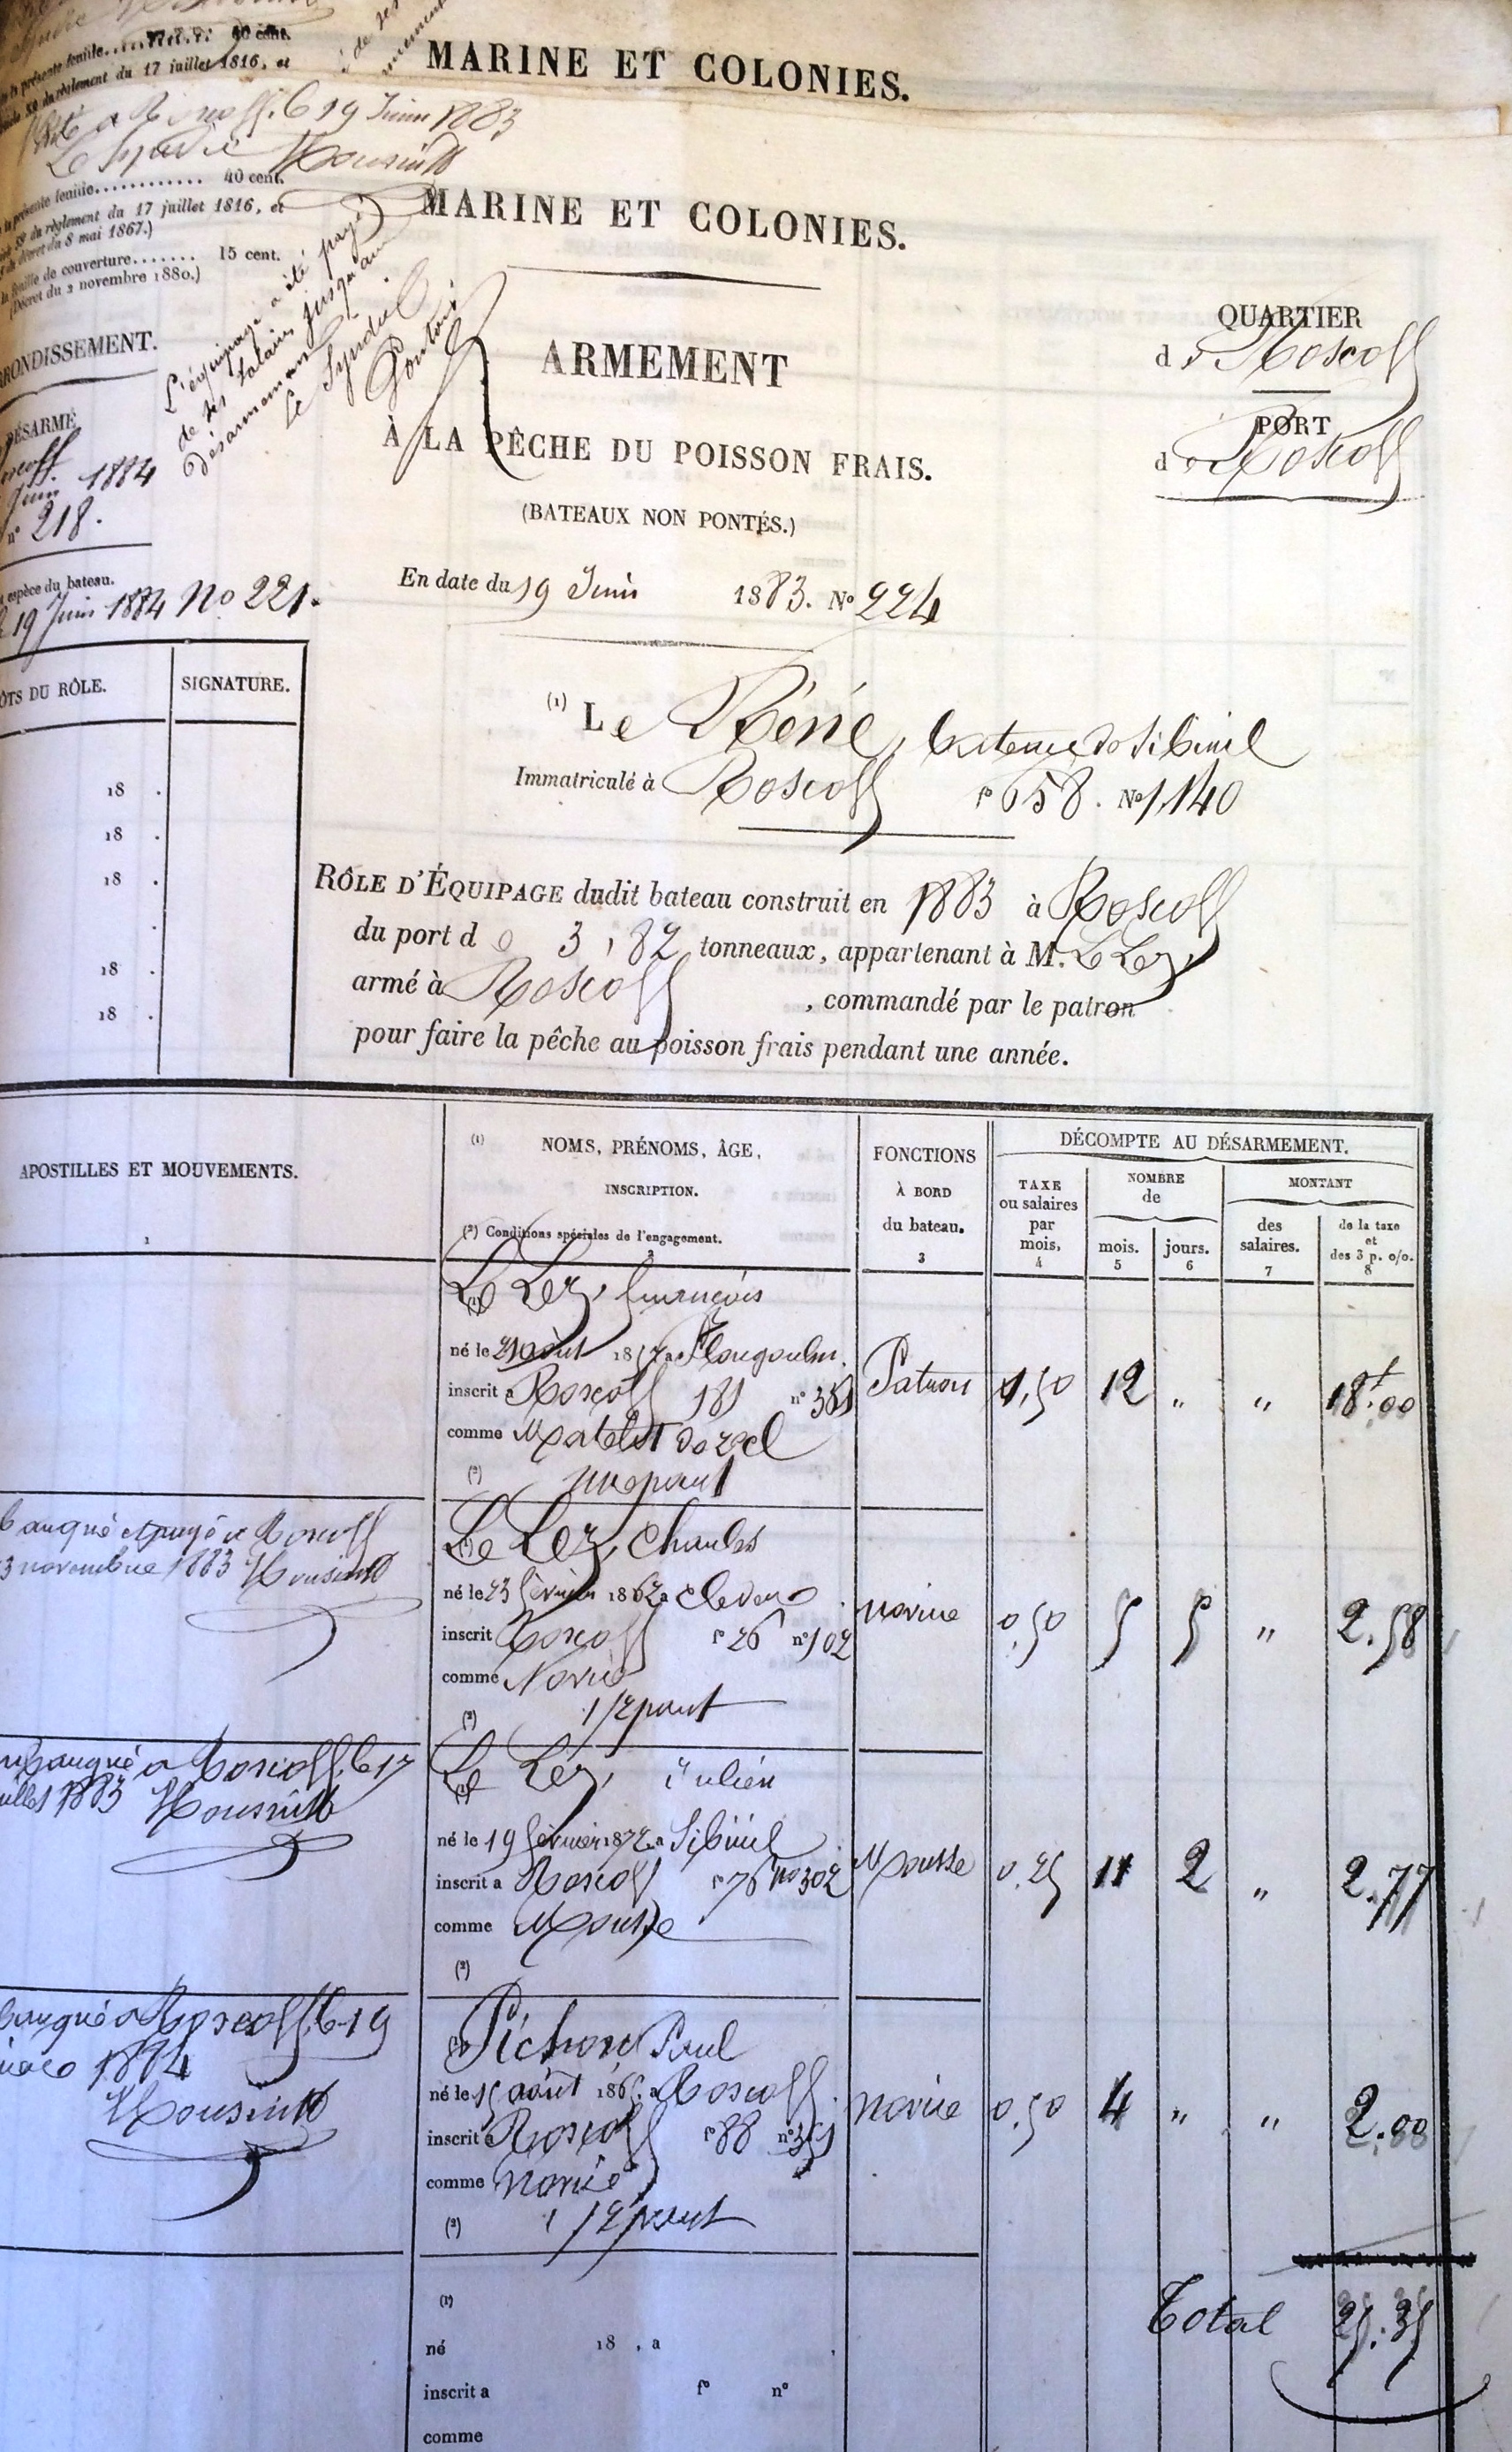 MARINE ET COLONIES.
présente feuille 40 cent.
du règlement du 17 juillet 1816, et
à Roscoff, le 19 Juin 1883
Le Syndic
présente feuille............ 40 cent.
du règlement du 17 juillet 1816, et
du décret du 8 mai 1867.)
la feuille de couverture....... 15 cent.
(Décret du 2 novembre 1880.)
MARINE ET COLONIES.
L'équipage a été payé
de ses salaires jusqu'au
désarmement
Le Syndic
RONDISSEMENT.
DÉSARMÉ
Roscoff
Juin 1884
n° 218.
espèce du bateau.
le 19 Juin 1884 No 221.
ÔTS DU RÔLE. SIGNATURE.
18 .
18 .
18 .
.
18 .
18 .
QUARTIER
de Roscoff
PORT
de Roscoff
ARMEMENT
À LA PÊCHE DU POISSON FRAIS.
(BATEAUX NON PONTÉS.)
En date du 19 Juin 1883. No 224
(1) Le Réné, bateau de Sibiril
Immatriculé à Roscoff fo 658. No 1,140
RÔLE D'ÉQUIPAGE dudit bateau construit en 1883 à Roscoff
du port de 3,82 tonneaux, appartenant à M. Le Lez
armé à Roscoff , commandé par le patron
pour faire la pêche au poisson frais pendant une année.
APOSTILLES ET MOUVEMENTS.
1
(1) NOMS, PRÉNOMS, ÂGE,
INSCRIPTION.
(2) Conditions spéciales de l'engagement.
2
FONCTIONS
À BORD
du bateau.
3
DÉCOMPTE AU DÉSARMEMENT.
TAXE
ou salaires
par
mois,
4
NOMBRE
de
mois.
5
jours.
6
MONTANT
des
salaires.
7
de la taxe
et
des 3 p. o/o.
8
(1) Le Lez, François
né le 21 août 1857 a Plougoulm.
inscrit a Roscoff 181 n° 361
comme Matelot de 2e cl
(2) une part
Patron 1,50 12 " " 18f.00
banqué et payé à Roscoff
3 novembre 1883
(1) Le Lez, Charles
né le 23 février 1862 a Cleder
inscrit Roscoff fo 26 n° 102
comme Novice
(2) 1/2 part
novice 0,50 5 5 " 2.58
banqué a Roscoff, le 17
juillet 1883
(1) Le Lez, Julien
né le 19 février 1872 a Sibiril
inscrit a Roscoff fo 76 no 302
comme Mousse
(2)
Mousse 0,25 11 2 " 2.77
banqué a Roscoff, le 19
1884
(1) Pichon Paul
né le 15 août 1865 a Roscoff.
inscrit a Roscoff fo 88 n° 351
comme novice
(2) 1/2 part
novice 0,50 4 " " 2.00
Total 25.35
(1)
né 18 , a
inscrit a fo n°
comme